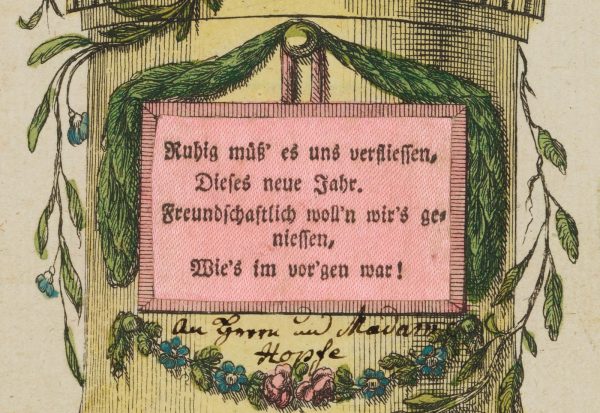 Ruhig müß' es uns verfliessen,
Dieses neue Jahr.
Freundschaftlich woll'n wir's ge-
niessen,
Wie's im vor'gen war!
An Herrn und Madame
Hopfe